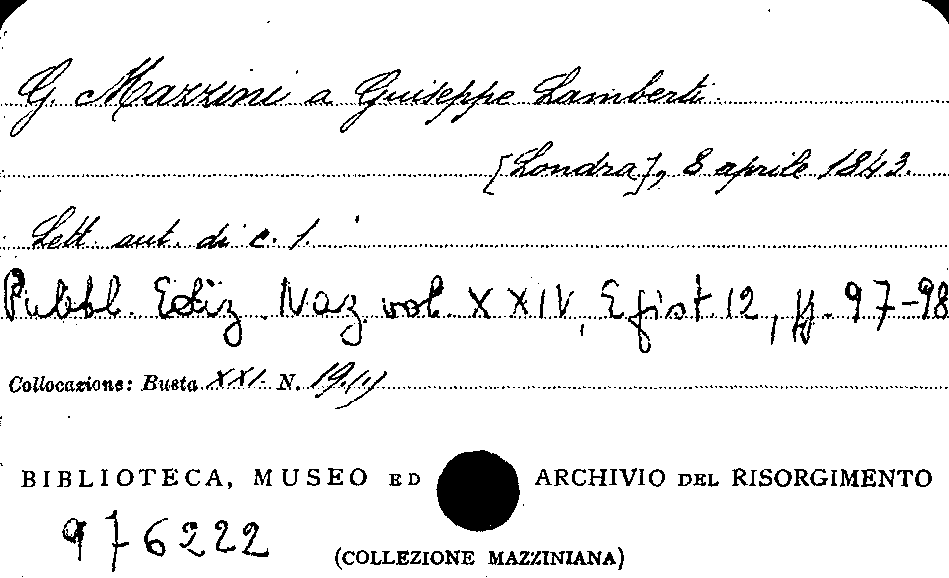 G. Mazzini a Giuseppe Lamberti.
[Londra], 8 aprile 1843.
Lett. aut. di c. 1.
Pubbl. Ediz. Naz. vol. XXIV, Epist. 12, pp. 97-98
Collocazione: Busta XXI. N. 19
BIBLIOTECA, MUSEO ED ARCHIVIO DEL RISORGIMENTO
976222
(COLLEZIONE MAZZINIANA)